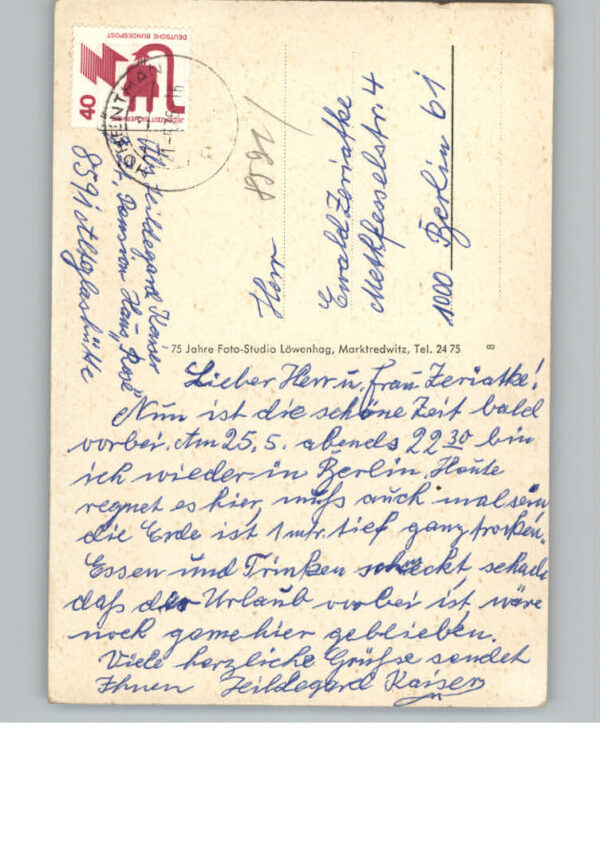 DEUTSCHE BUNDESPOST
40
JEDERZEIT SICHERHEIT
Hildegard Kaiser
Pension Haus „Rose"
8591 Altglashütte
8591/
Herr
Ewald Zeriatke
Methfesselstr. 4
1000 Berlin 61
75 Jahre Foto-Studio Löwenhag, Marktredwitz, Tel. 24 75
Lieber Herr u. Frau Zeriatke!
Nun ist die schöne Zeit bald
vorbei. Am 25. 5. abends 22 30 bin
ich wieder in Berlin. Heute
regnet es hier, muß auch mal sein,
die Erde ist 1 mtr. tief ganz trocken.
Essen und Trinken schmeckt, schade
daß der Urlaub vorbei ist, wäre
noch gerne hier geblieben.
Viele herzliche Grüße sendet
Ihnen Heildegard Kaiser